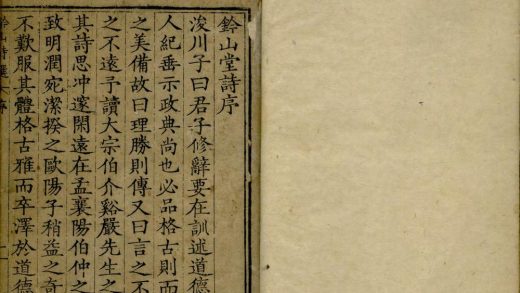 鈐山堂詩序
浚川子曰君子修辭要在訓述道德
人紀垂示政典尚也必品格古則而
之美備故曰理勝則傳又曰言之不
之不遠予讀大宗伯介谿嚴先生之
其詩思冲邃閑遠在孟襄陽伯仲之
致明潤宛潔揆之歐陽子稍益之奇
不歎服其體格古雅而卒澤於道德
山詩選 序